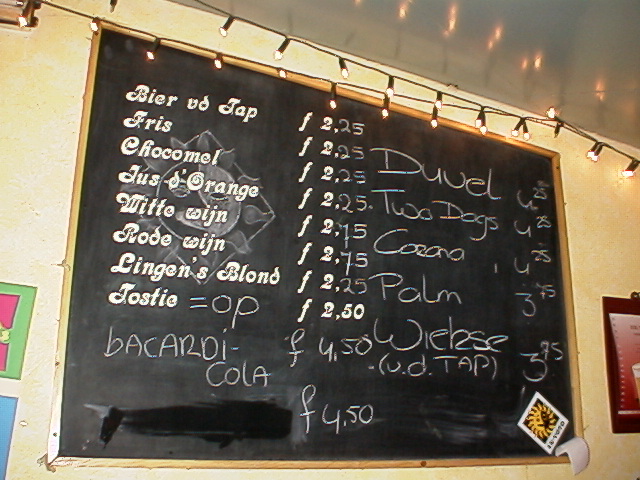 Bier vd Tap f 2,25
Fris f 2,25
Chocomel f 2,25
Jus d'Orange f 2,25.
Witte wijn f 2,75
Rode wijn f 2,75
Lingen's Blond f 2,25
Tostie =op f 2,50
bACARDi- f 4,50
COLA
f 4,50
Duvel 4,25
Two Dogs 4,25
Corona 4,25
Palm 3,75
Wiekse 3,95
(v.d. TAP)